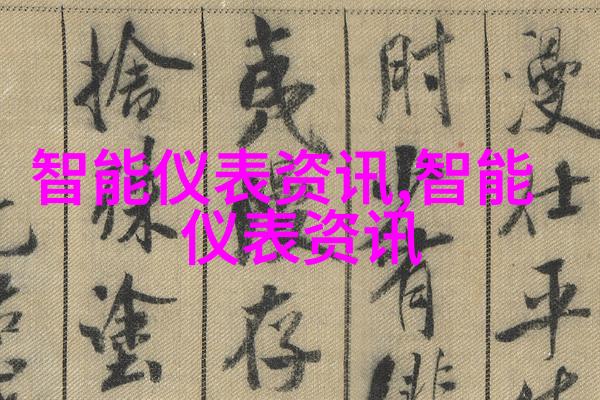 智能仪表资讯,智能
仪表资讯
漫仕平
肘有俳
夷存
捨殊塗